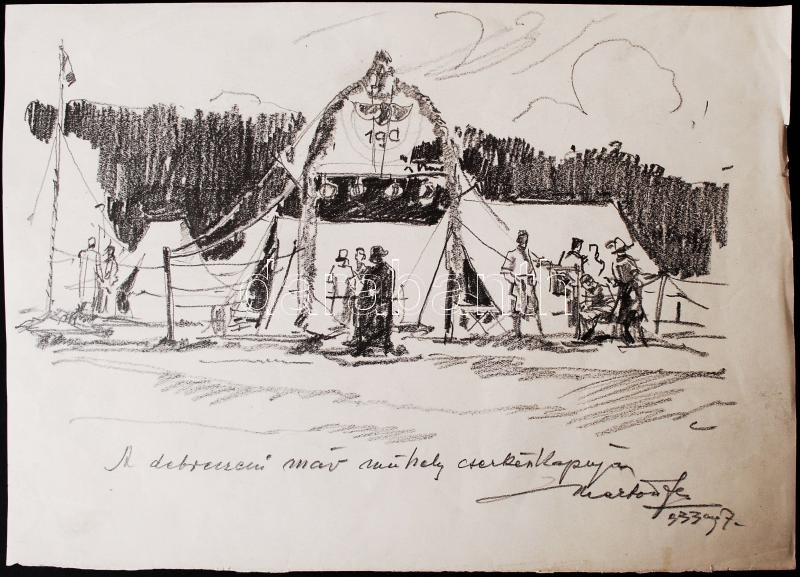 190
darabanth
A debreceni máv műhely cserkészkapuja
Márton F.
933 aug 7.